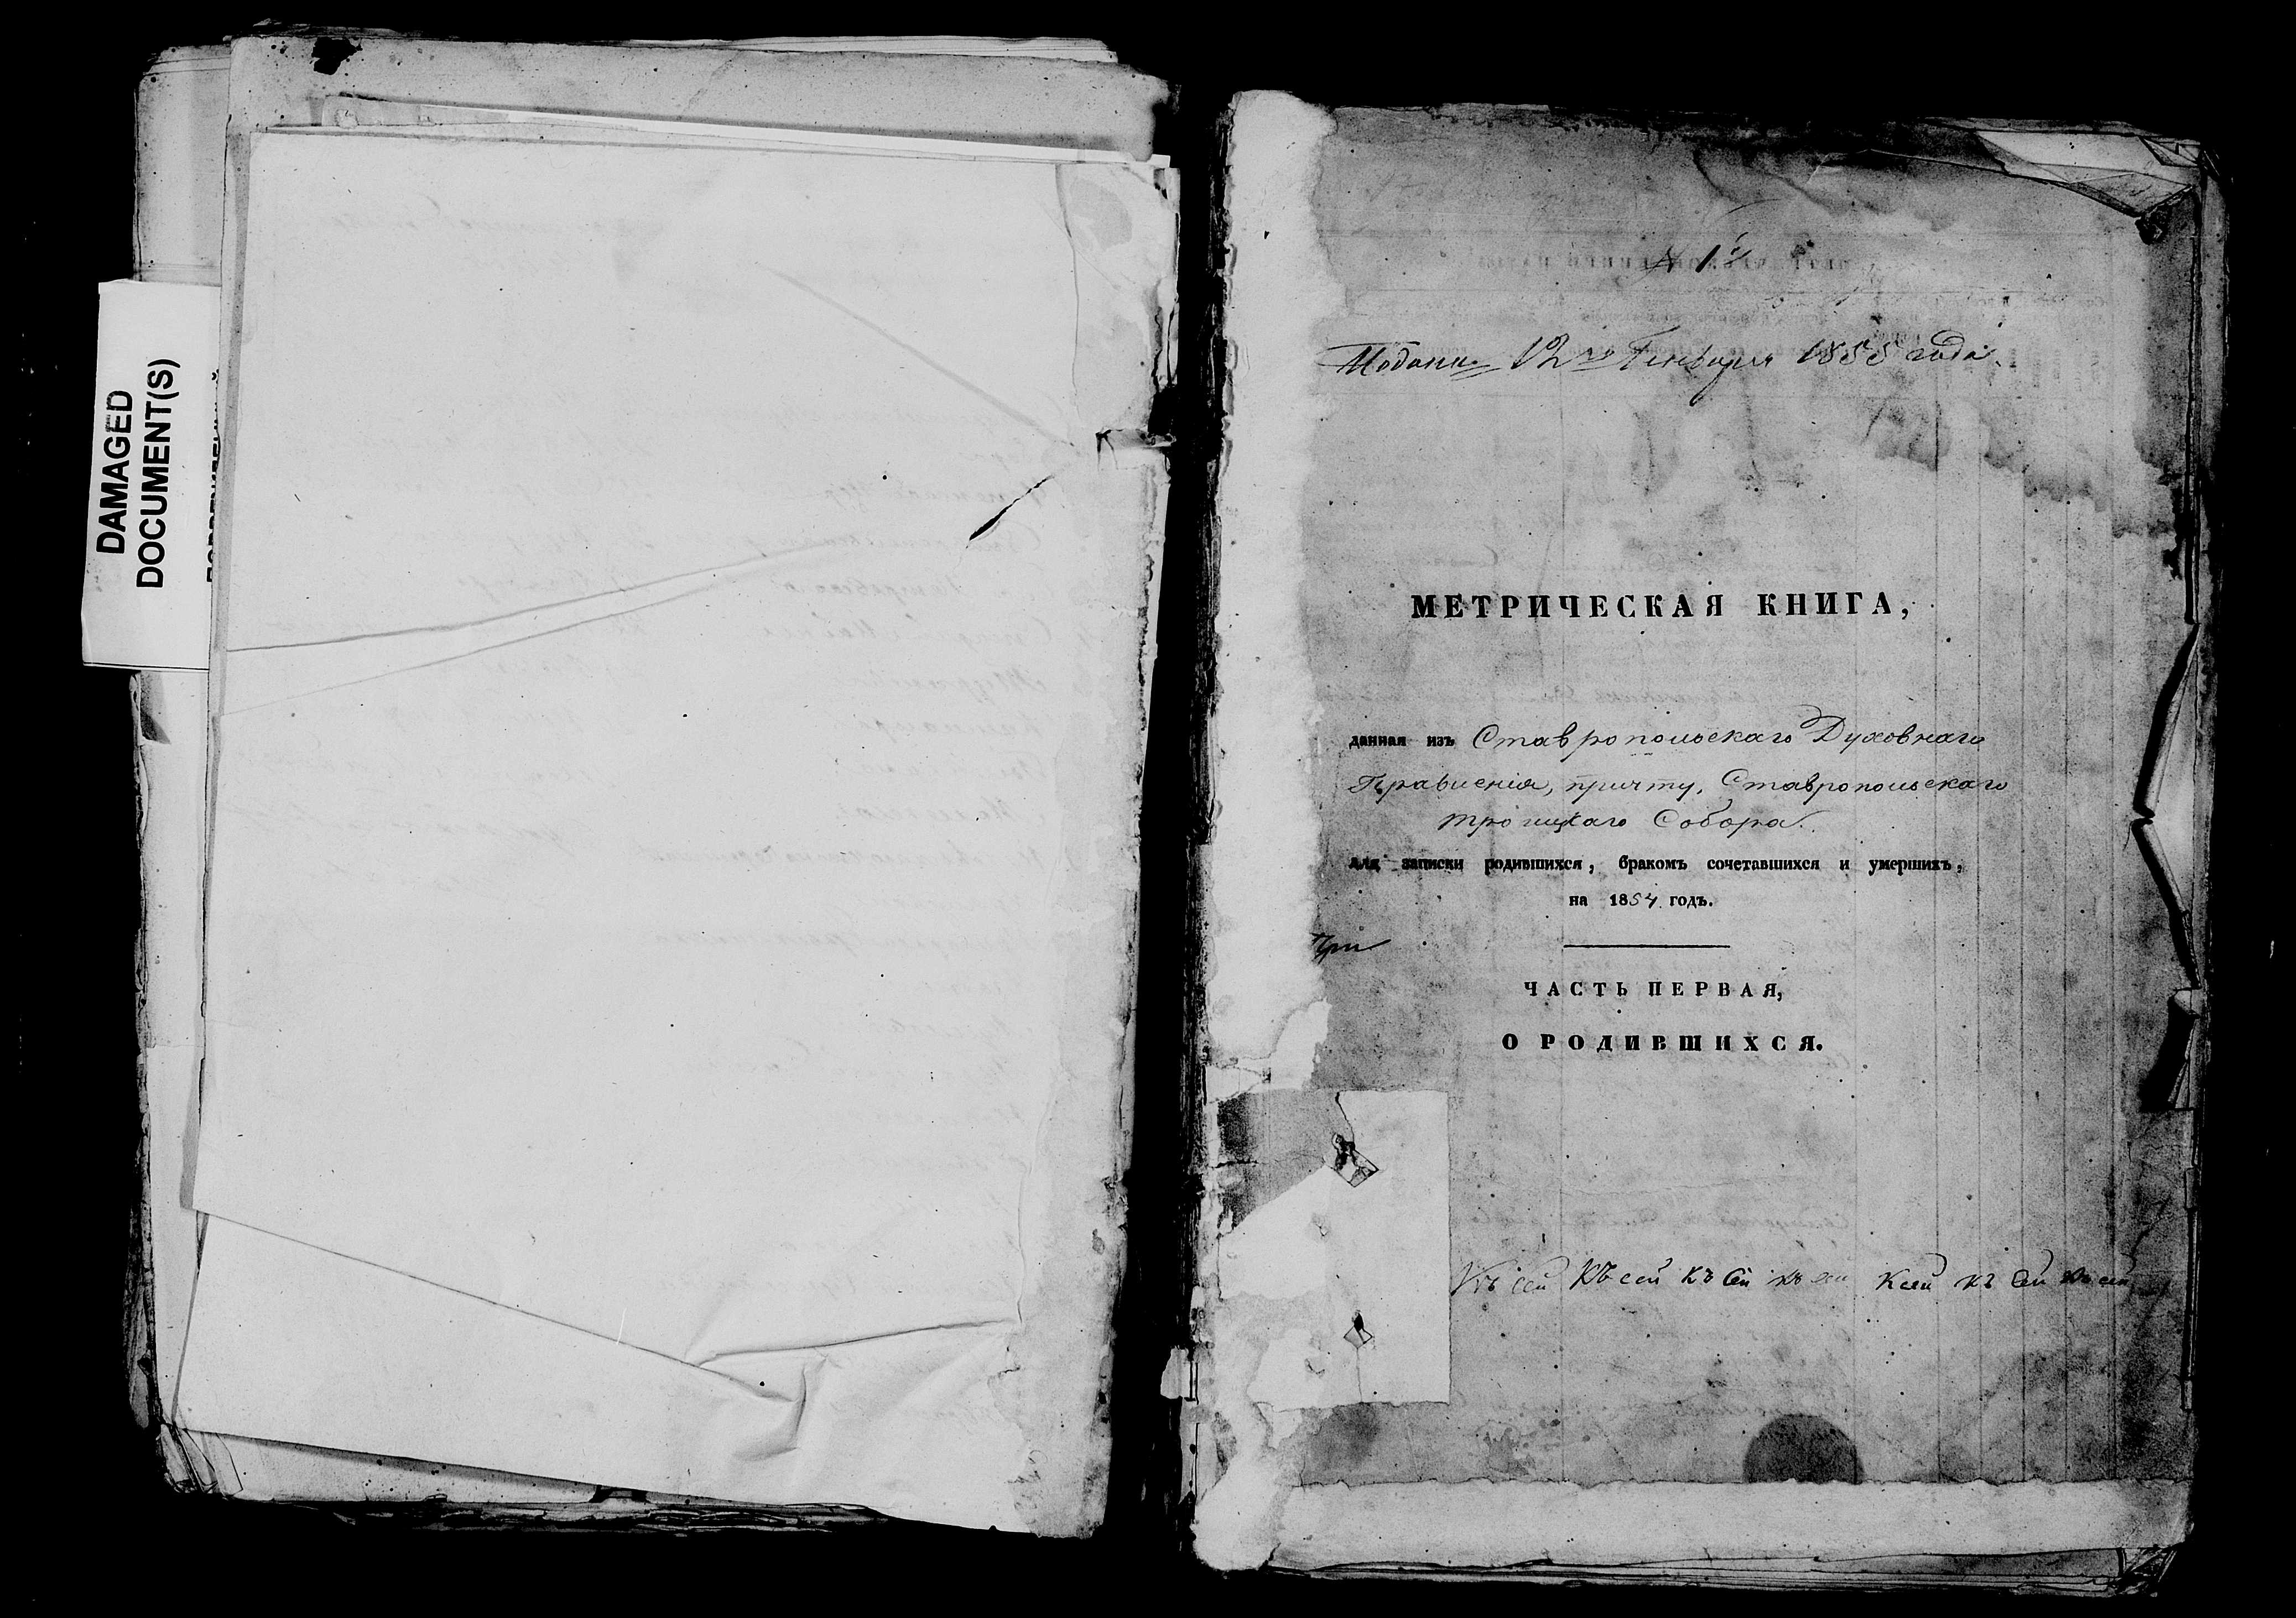 DAMAGED
DOCUMENT(S)
№ 1й
Подана 12го Генваря 1855 года.
МЕТРИЧЕСКАЯ КНИГА,
данная изъ Ставропольскаго Духовнаго
Правленія, причту, Ставропольскаго
Троицкаго Собора.
для записки родившихся, бракомъ сочетавшихся и умершихъ,
на 1854 годъ.
При
ЧАСТЬ ПЕРВАЯ,
О РОДИВШИХСЯ.
Къ сей Къ сей къ сей къ сей Ксей къ сей къ сей